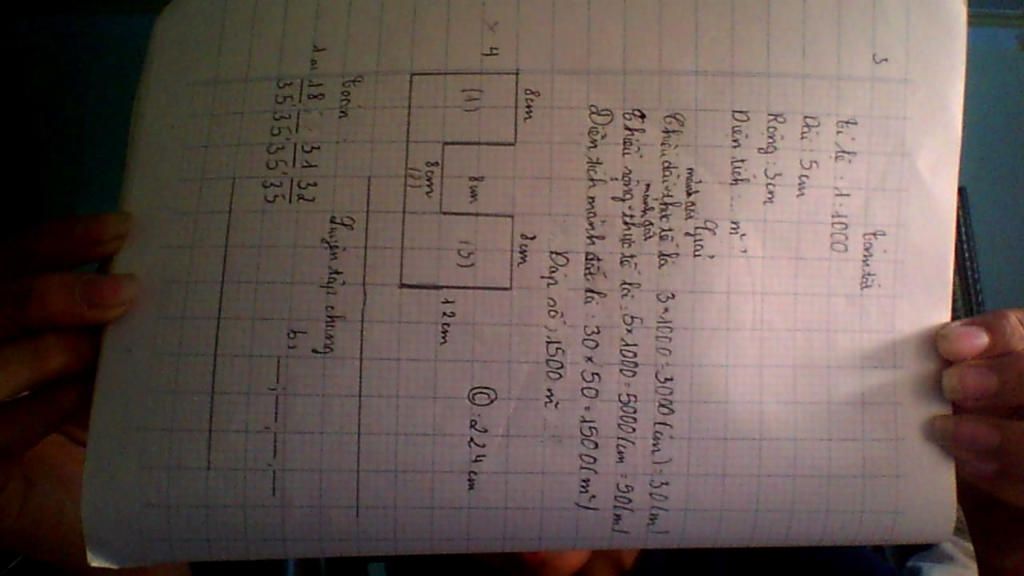 3
Tóm tắt
Tỉ lệ : 1:1000
Dài : 5cm
Rộng : 3cm
Diện tích : ... m²?
Giải
Chiều dài mảnh đất thực tế là 3×1000 = 3000 (cm) = 30 (m)
Chiều rộng mảnh đất thực tế là : 5×1000 = 5000 (cm = 50 (m)
Diện tích mảnh đất là : 30 × 50 = 1500 (m²)
Đáp số : 1500 m²
× 4
8cm
(1)
8cm
8cm
(2)
(3)
12cm
C. 224cm
Luyện tập chung
Toán :
18/35 ; /35 ; 31/35 ; 32/35
b,